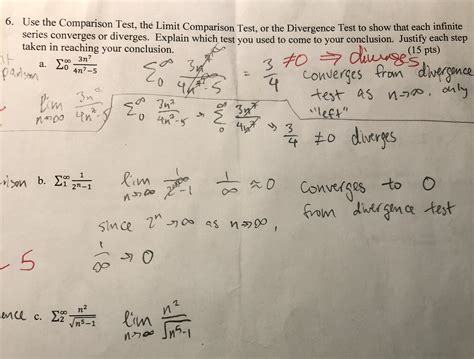 6. Use the Comparison Test, the Limit Comparison Test, or the Divergence Test to show that each infinite
series converges or diverges. Explain which test you used to come to your conclusion. Justify each step
taken in reaching your conclusion. (15 pts)
a. Σ₀^∞ 3n⁷/(4n⁷−5) = 3/4 ≠0 ⇒ diverges
converges from divergence
test as n→∞, only
"left"
lim n→∞
→ 3/4 ≠0 diverges
b. Σ₁^∞ 1/(2ⁿ−1) lim n→∞ 1/∞ ≈ 0 Converges to 0
from divergence test
since 2ⁿ→∞ as n→∞,
1/∞ → 0
- 5
c. Σ₂^∞ n²/√(n⁵−1) lim n→∞ n²/√(n⁵-1)